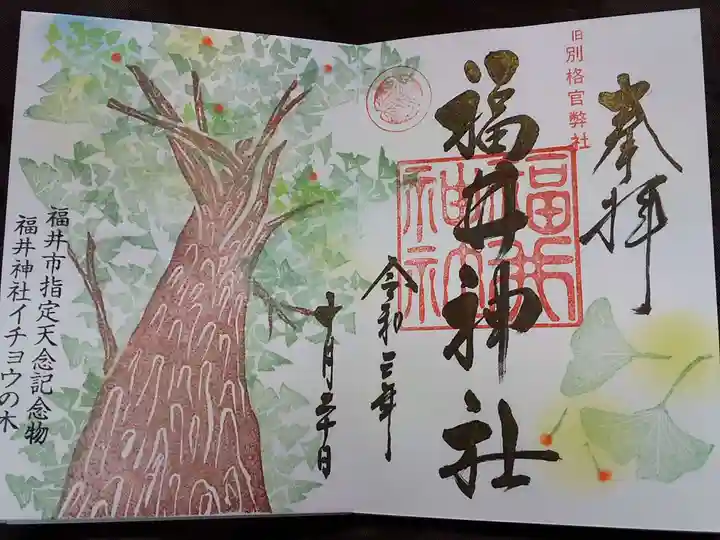 奉拝
旧別格官弊社
福井神社
福井神社
令和三年
十月二十日
福井市指定天念記念物
福井神社イチョウの木